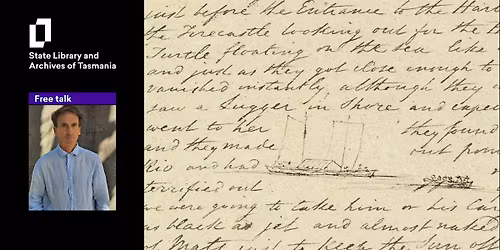 State Library and
Archives of Tasmania
Free talk
just before the Entrance to the Har
the Forecastle looking out for the
Turtle floating on the sea like
and just as they got close enough to
vanished instantly, although they
saw a Lugger in Shore and expec
went to her they found
and they made out from
Rio and had
terrified out
we were going to take him or his Car
as black as jet and almost naked
of Matts just to keep the Sun off